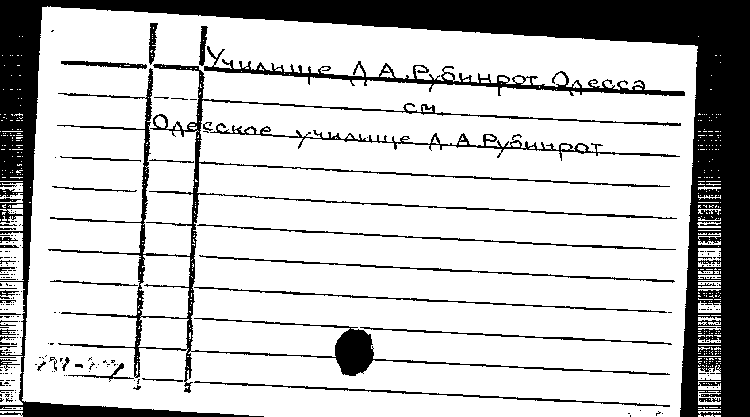 Училище Д.А.Рубинрот. Одесса
см.
Одесское училище Д.А.Рубинрот